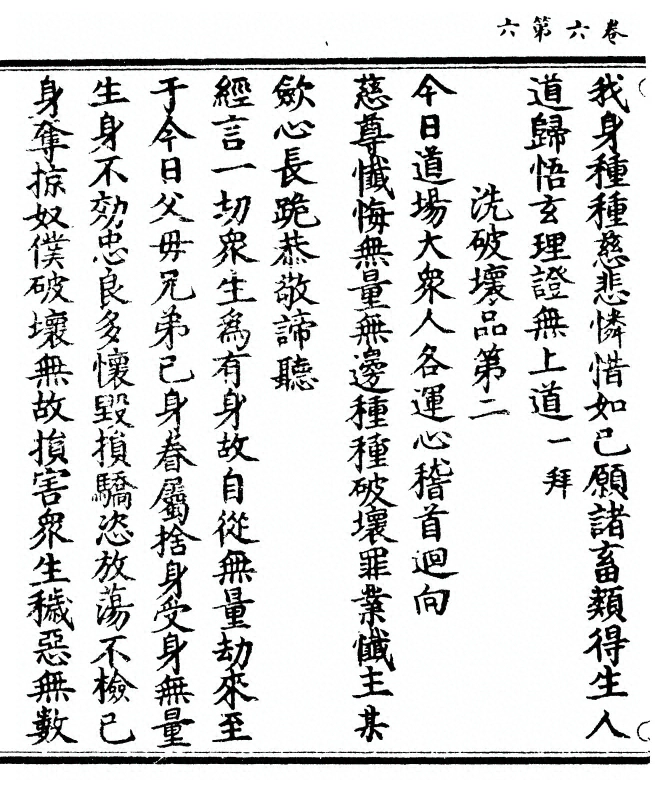 卷六第六
我身種種慈悲憐惜如己願諸畜類得生人
道歸悟玄理證無上道一拜
洗破壞品第二
今日道場大眾人各運心稽首迴向
慈尊懺悔無量無邊種種破壞罪業懺主某
歛心長跪恭敬諦聽
經言一切眾生為有身故自從無量劫來至
于今日父母兄弟己身眷屬捨身受身無量
生身不効忠良多懷毀損驕恣放蕩不檢己
身奪掠奴僕破壞無故損害眾生穢惡無數